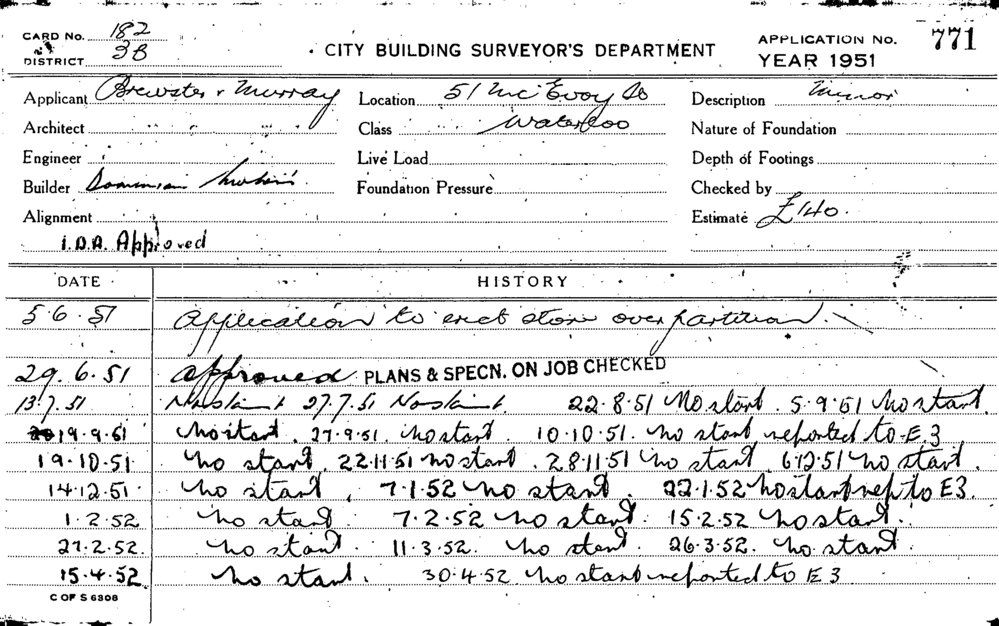 CARD No. 182
DISTRICT 3B
CITY BUILDING SURVEYOR'S DEPARTMENT
APPLICATION No. 771
YEAR 1951
Applicant Brewster & Murray Location 51 McEvoy St Description Minor
Architect Class Waterloo Nature of Foundation
Engineer Live Load Depth of Footings
Builder Dominion Foundation Pressure Checked by
Alignment Estimate £140.
I.D.A. Approved
DATE HISTORY
5.6.51 Application to erect store over partition.
29.6.51 Approved PLANS & SPECN. ON JOB CHECKED
13.7.51 No start 27.7.51 No start. 22.8.51 No start. 5.9.51 no start.
19.9.51 no start. 27.9.51. no start. 10.10.51. no start, reported to E.3
19.10.51 no start, 22.11.51 no start. 28.11.51 no start. 6.12.51 no start.
14.12.51 no start, 7.1.52 no start. 22.1.52 no start rep to E3.
1.2.52 no start. 7.2.52 no start. 15.2.52 no start.
27.2.52. no start. 11.3.52. no start. 26.3.52. no start.
15.4.52 no start. 30.4.52 no start reported to E3
C OF S 6308